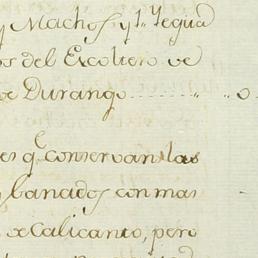 y Machos y 1ª Yegua
os del Escotero de
de Durango ........ " .. " .. 0
es q.e conservan las
bañados con mas
de Calicanto, pero